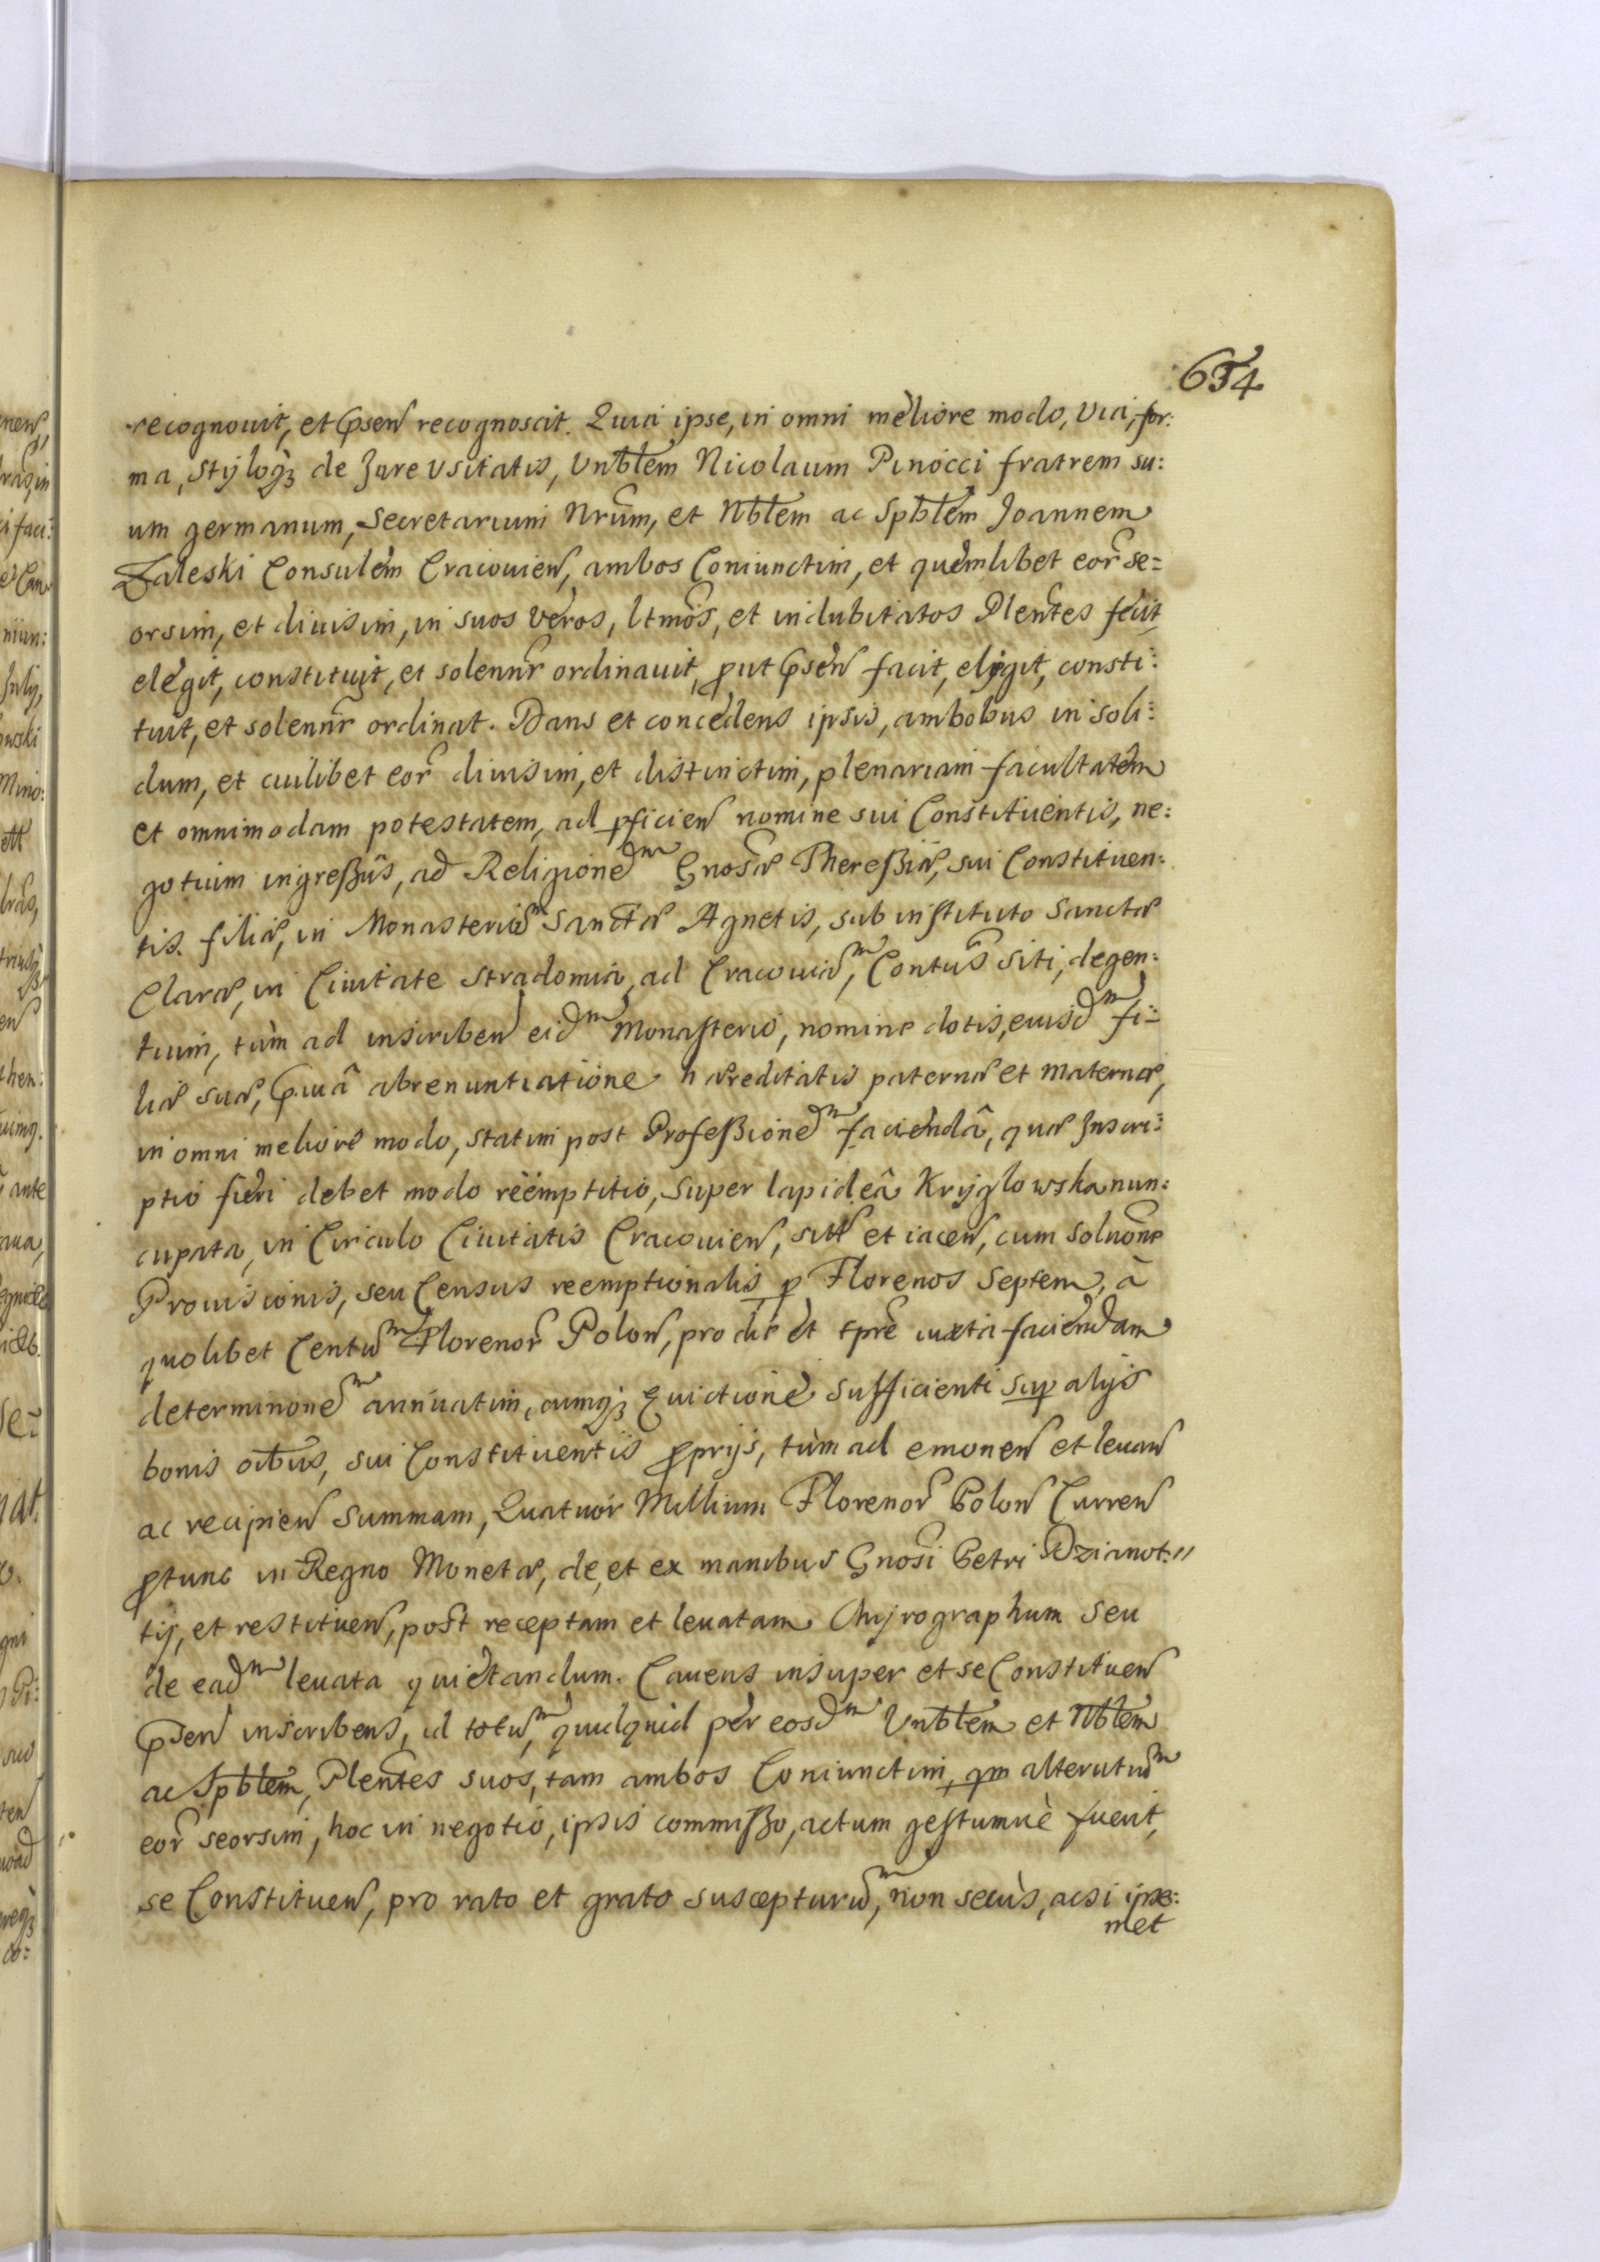 654
recognouit, et p̃sen recognoscit. Quia ipse, in omni meliore modo, via, for:
ma, styloq3 de Jure vsitatis, Vnbłem Nicolaum Pinocci fratrem su:
um germanum, Secretarium Nrũm, et Nbłem ac Spbłem Joannem
Zaleski Consulem Cracouien, ambos Coniunctim, et quemlibet eor̃ se=
orsim, et diuisim, in suos veros, ltmõs, et indubitatos Plen̄tes fecit
elegit, constituit, et solennr̃ ordinauit, ꝓut p̃sen facit, eligit, consti:
tuit, et solennr̃ ordinat. Dans et concedens ipsis, ambobus in soli:
dum, et cuilibet eor̃ diuisim, et distinctim, plenariam facultatem
et omnimodam potestatem, ad ꝑficien nomine sui Constituentis, ne:
gotium ingreßûs, ad Religionem Gnosæ Thereßiæ, sui Constituen:
tis filiæ, in Monasterium Sanctæ Agnetis, sub instituto Sanctæ
Claræ, in Ciuitate Stradomia, ad Cracouiam, Contus̃ siti, degen:
tium, tùm ad inscriben eidm Monasterio, nomine dotis, eiusdm fi=
liæ suæ, p̃uiâ abrenuntiatione hæreditatis paternæ et maternæ,
in omni meliore modo, statim post Profeßionem faciendâ, quæ Inscri:
ptio fieri debet modo rëemptitio, super lapideâ Kryglowska nun:
cupata, in Circulo Ciuitatis Cracouien, sitt et iacen, cum soluõne
Prouisionis, seu Census reemptionalis ꝑ Florenos Septem, à
quolibet Centum Florenor̃ Polon, pro die et tpr̃e iuxta faciendam
determinonem annuatim, cumq3 Euictione sufficienti sup alijs
bonis oĩbus, sui Constituentis ꝓprijs, tùm ad emonen et leuan
ac recipien Summam, Quatuor Millium Florenor̃ Polon Curren
ꝓtunc in Regno Monetæ, de, et ex manibus Gnosi Petri Dzianot:"
tij, et restituen, post receptam et leuatam Chyrographum seu
de eadm leuata quietandum. Cauens insuper et se Constituen
p̃sen inscribens, id totum, quidquid per eosdm Vnbłem et Nbłem
ac Spbłem, Plen̄tes suos, tam ambos Coniunctim, qm alterutrum
eor̃ seorsim, hoc in negotio, ipsis commißo, actum gestumuè fuerit,
se Constituen, pro rato et grato suscepturum, non secùs, acsi ipse:
met